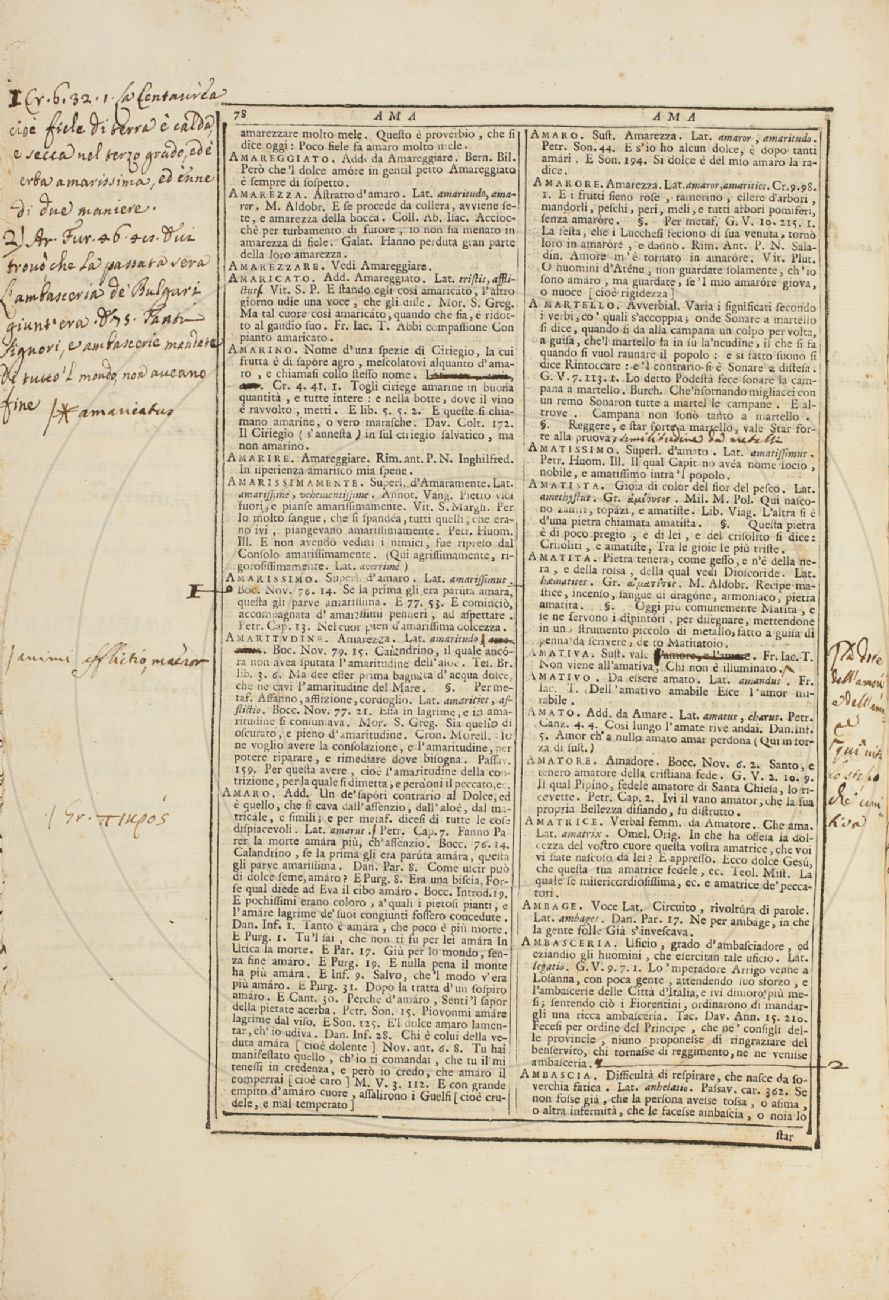 1 Cr. 6. 32. 1. La Centaurea
cioè fiele di terra è calda,
e secca nel terzo grado, ed è
erba amarissima, ed enne
di due maniere.
2) Ar. Fur. 46.
trovò che la passata sera
L'ambasceria de' Bulgari
giunt'era
Signori, e ambascerie mandate
Da tutto 'l mondo, non aveano
fine
amaricatus
1
animi afflictio, mæror
Gr. πικρός
78 AMA AMA
amarezzare molto mele. Questo è proverbio, che si
dice oggi: Poco fiele fa amaro molto mele.
AMAREGGIATO. Add. da Amareggiare. Bern. Bil.
Però che'l dolce amóre in gentil petto Amareggiato
è sempre di sospetto.
AMAREZZA. Astratto d'amaro. Lat. amaritudo, ama-
ror. M. Aldobr. E se procede da collera, avviene se-
te, e amarezza della bocca. Coll. Ab. Isac. Accioc-
chè per turbamento di furore, io non sia menato in
amarezza di fiele. Galat. Hanno perduta gran parte
della loro amarezza.
AMAREZZARE. Vedi Amareggiare.
AMARICATO. Add. Amareggiato. Lat. tristis, affli-
ctus. Vit. S. P. E stando egli così amaricato, l'altro
giorno udie una voce, che gli disse. Mor. S. Greg.
Ma tal cuore così amaricato, quando che sia, è ridot-
to al gaudio suo. Fr. Iac. T. Abbi compassione Con
pianto amaricato.
AMARINO. Nome d'una spezie di Ciriegio, la cui
frutta è di sapóre agro, mescolatovi alquanto d'ama-
ro, e chiamasi collo stesso nome.
Cr. 4. 41. 1. Togli ciriege amarine in buona
quantità, e tutte intere: e nella botte, dove il vino
è ravvolto, metti. E lib. 5. 5. 2. E queste si chia-
mano amarine, o vero marasche. Dav. Colt. 172.
Il Ciriegio (s'annesta) in sul ciriegio salvatico, ma
non amarino.
AMARIRE. Amareggiare. Rim. ant. P. N. Inghilfred.
In isperienza amarisco mia spene.
AMARISSIMAMENTE. Superl. d'Amaramente. Lat.
amarissime, vehementissime. Annot. Vang. Pietro uscì
fuori, e pianse amarissimamente. Vit. S. Margh. Per
lo molto sangue, che si spandéa, tutti quelli, che era-
no ivi, piangevano amarissimamente. Petr. Huom.
Ill. E non avendo veduti i nimici, fue ripreso dal
Consolo amarissimamente. (Qui agrissimamente, ri-
gorosissimamente. Lat. acerrimè)
AMARISSIMO. Superl. d'amaro. Lat. amarissimus.
Boc. Nov. 76. 14. Se la prima gli era paruta amára,
questa gli parve amarissima. E 77. 53. E cominciò,
accompagnata d'amarissimi pensieri, ad aspettare.
Petr. Cap. 13. Nel cuor pien d'amarissima dolcezza.
AMARITUDINE. Amarezza. Lat. amaritudo
Boc. Nov. 79. 15. Calandrino, il quale ancó-
ra non avea sputata l'amaritudine dell'aloè. Tes. Br.
lib. 3. 6. Ma dee esser prima bagnata d'acqua dolce,
che ne cavi l'amaritudine del Mare. §. Per me-
taf. Affanno, afflizione, cordoglio. Lat. amarities, af-
flictio. Bocc. Nov. 77. 21. Essa in lagrime, e in ama-
ritudine si consumava. Mor. S. Greg. Sia quello dì
oscurato, e pieno d'amaritudine. Cron. Morell. Io
ne voglio avere la consolazione, e l'amaritudine, per
potere riparare, e rimediare dove bisogna. Passav.
159. Per questa avere, cioè l'amaritudine della con-
trizione, per la quale si dimetta, e perdoni il peccato, ec.
AMARO. Add. Un de' sapóri contrario al Dolce, ed
è quello, che si cava dall'assenzio, dall'aloè, dal ma-
tricále, e simili; e per metaf. dicesi di tutte le cose
dispiacevoli. Lat. amarus. Petr. Cap. 7. Fanno Pa-
rer la morte amára più, ch'assenzio. Bocc. 76. 14.
Calandrino, se la prima gli era parúta amára, questa
gli parve amarissima. Dan. Par. 8. Come uscir può
di dolce seme, amáro? E Purg. 8. Era una biscia, For-
se qual diede ad Eva il cibo amáro. Bocc. Introd. 19.
E pochissimi erano coloro, a' quali i pietosi pianti, e
l'amáre lagrime de' suoi congiunti fossero concedute.
Dan. Inf. 1. Tanto è amára, che poco è più morte.
E Purg. 1. Tu'l sai, che non ti fu per lei amára In
Utica la morte. E Par. 17. Giù per lo mondo, sen-
za fine amáro. E Purg. 19. E nulla pena il monte
ha più amára. E Inf. 9. Salvo, che'l modo v'era
più amáro. E Purg. 31. Dopo la tratta d'un sospiro
amáro. E Cant. 30. Perche d'amáro, Sentì'l sapor
della pietate acerba. Petr. Son. 15. Piovonmi amáre
lagrime dal viso. E Son. 125. E'l dolce amaro lamen-
tar, ch'io udiva. Dan. Inf. 28. Chi è colui della ve-
duta amára [cioè dolente] Nov. ant. 6. 8. Tu hai
manifestato quello, ch'io ti comandai, che tu il mi
tenessi in credenza, e però io credo, che amáro il
comperrai [cioè caro] M. V. 3. 112. E con grande
empito d'amáro cuore, assalirono i Guelfi [cioè cru-
dele, e mal temperato]
AMARO. Sust. Amarezza. Lat. amaror, amaritudo.
Petr. Son. 44. E s'io ho alcun dolce, è dopo tanti
amári. E Son. 194. Sì dolce è del mio amaro la ra-
dice.
AMARORE. Amarezza. Lat. amaror, amarities. Cr. 9. 98.
1. E i frutti sieno rose, ramerino, ellere d'arbori,
mandorli, peschi, peri, meli, e tutti albori pomiferi,
senza amaróre. §. Per metaf. G. V. 10. 215. 1.
La festa, che i Lucchesi feciono di sua venuta, tornò
loro in amaróre, e danno. Rim. Ant. P. N. Sala-
din. Amore m'è tornato in amaróre. Vit. Plut.
O huomini d'Aténe, non guardate solamente, ch'io
sono amáro, ma guardate, se'l mio amaróre giova,
o nuoce [cioè rigidezza]
A MARTELLO. Avverbial. Varia i significati secondo
i verbi, co' quali s'accoppia; onde Sonare a martello
si dice, quando si dà alla campana un colpo per volta,
a guisa, che'l martello fa in su la'ncudine, il che si fa
quando si vuol raunare il popolo: e sì fatto suono si
dice Rintoccare: e'l contrario si è Sonare a distesa.
G. V. 7. 113. 1. Lo detto Podestà fece sonare la cam-
pana a martello. Burch. Che'nsornando migliacci con
un remo Sonaron tutte a martel le campane. E al-
trove. Campana non sonò tanto a martello.
§. Reggere, e star forte a martello, vale Star for-
te alla pruova, similitudine da' metalli
AMATISSIMO. Superl. d'amato. Lat. amatissimus.
Petr. Huom. Ill. Il qual Capit no avéa nome socio,
nobile, e amatissimo intra'l popolo.
AMATISTA. Gioia di color del fior del pesco. Lat.
amethystus. Gr. ἀμέθυσος. Mil. M. Pol. Qui nasco-
no zaffiri, topázi, e amatiste. Lib. Viag. L'altra si è
d'una pietra chiamata amatista. §. Questa pietra
è di poco pregio, e di lei, e del crisolito si dice:
Crisoliti, e amatiste, Tra le gioie le più triste.
AMATITA. Pietra tenera, come gesso, e n'è della ne-
ra, e della rossa, della qual vedi Dioscoride. Lat.
hæmatites. Gr. αἱματίτης. M. Aldobr. Recipe ma-
stice, incenso, sangue di dragóne, armoniaco, pietra
amatita. §. Oggi più comunemente Matita, e
se ne servono i dipintori, per disegnare, mettendone
in uno strumento piccolo di metallo, fatto a guisa di
penna da scrivere, detto Matitatoio.
AMATIVA. Sust. val. Fr. Iac. T.
Non viene all'amativa, Chi non è illuminato.
AMATIVO. Da essere amato. Lat. amandus. Fr.
Iac. T. Dell'amativo amabile Esce l'amor mi-
rabile.
AMATO. Add. da Amare. Lat. amatus, charus. Petr.
Canz. 4. 4. Così lungo l'amate rive andai. Dan. Inf.
5. Amor ch'a nullo amato amar perdona (Qui in for-
za di sust.)
AMATORE. Amadore. Bocc. Nov. 6. 2. Santo, e
tenero amatore della cristiana fede. G. V. 2. 10. 9.
Il qual Pipino, fedele amatore di Santa Chiesa, lo ri-
cevette. Petr. Cap. 2. Ivi il vano amator, che la sua
propria Bellezza disiando, fu distrutto.
AMATRICE. Verbal femm. da Amatore. Che ama.
Lat. amatrix. Omel. Orig. In che ha offesa la dol-
cezza del vostro cuore questa vostra amatrice, che voi
vi siate nascoso da lei? E appresso. Ecco dolce Gesù,
che questa tua amatrice fedele, ec. Teol. Mist. La
quale se misericordiosissima, ec. e amatrice de' pecca-
tori.
AMBAGE. Voce Lat. Circuito, rivoltúra di parole.
Lat. ambages. Dan. Par. 17. Ne per ambage, in che
la gente folle Già s'invescava.
AMBASCERIA. Uficio, grado d'ambasciadore, ed
eziandio gli huomini, che esercitan tale uficio. Lat.
legatio. G. V. 9. 7. 1. Lo'mperadore Arrigo venne a
Losanna, con poca gente, attendendo suo sforzo, e
l'ambascerie delle Città d'Italia, e ivi dimorò più me-
si; sentendo ciò i Fiorentini, ordinarono di mandar-
gli una ricca ambascería. Tac. Dav. Ann. 15. 210.
Fecesi per ordine del Principe, che ne' consigli del-
le provincie, niuno proponesse di ringraziare del
benservito, chi tornasse di reggimento, ne ne venisse
ambascería.
AMBASCIA. Difficultà di respirare, che nasce da so-
verchia fatica. Lat. anhelatio. Passav. car. 362. Se
non fosse già, che la persona avesse tossa, o asima,
o altra infermità, che le facesse ambascia, o noia lo
star
2